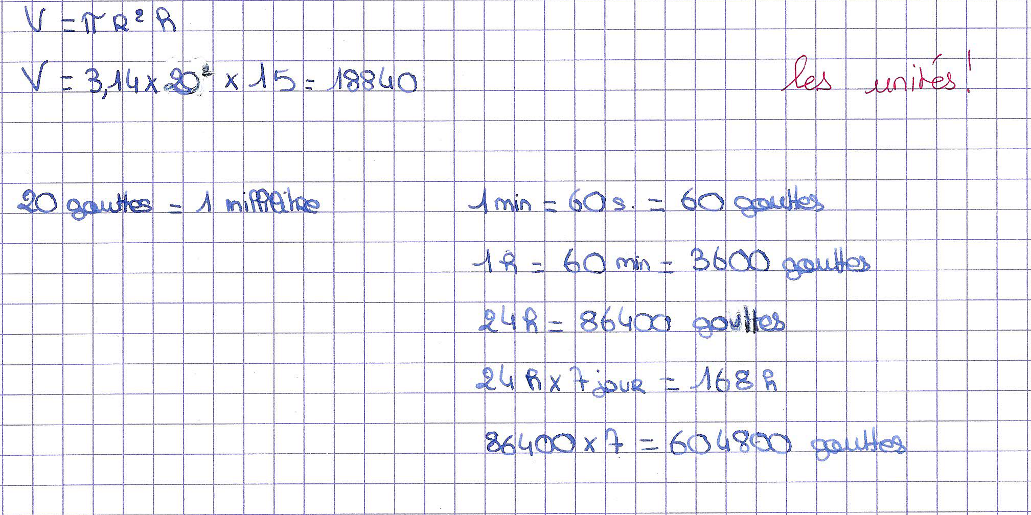 V = π R² h
V = 3,14 x 20² x 15 = 18840
les unités!
20 gouttes = 1 millilitre
1 min = 60 s. = 60 gouttes
1 h = 60 min = 3600 gouttes
24 h = 86400 gouttes
24 h x 7 jour = 168 h
86400 x 7 = 604800 gouttes